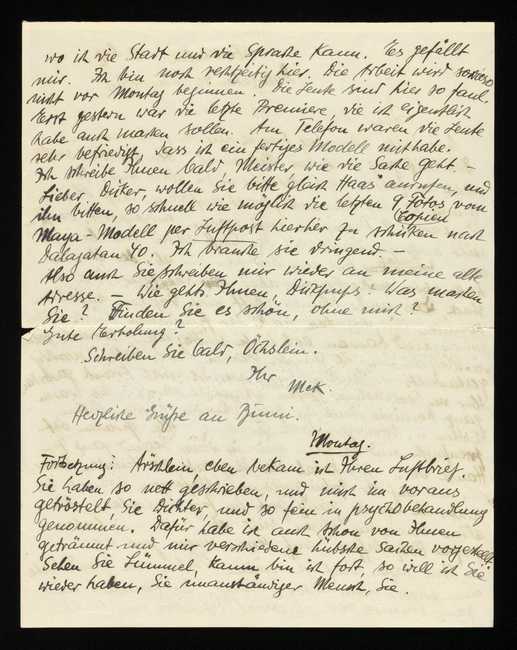 wo ich die Stadt und die Sprache kann. Es gefällt
mir. Ich bin noch rechtzeitig hier. Die Arbeit wird sowieso
nicht vor Montag beginnen. Die Leute sind hier so faul.
Erst gestern war die letzte Premiere, die ich eigentlich
habe auch machen sollen. Am Telefon waren die Leute
sehr befriedigt, dass ich ein fertiges Modell mithabe.
Ich schreibe Ihnen bald, Meister, wie die Sache geht. –
Lieber, Dicker, wollen Sie bitte gleich Haas anrufen, und
ihn bitten, so schnell wie möglich die letzten 9 Fotos vom
Copien
Maya-Modell per Luftpost hierher zu schicken nach
Dalagatan 40. Ich brauche sie dringend. –
Also auch Sie schreiben mir wieder an meine alte
Adresse. – Wie gehts Ihnen, Was machen
Sie? Finden Sie es schön, ohne mich?
Gute Erholung?
Schreiben Sie bald, Öchslein.
Ihr
Mck.
Herzliche Grüße an
Montag.
Fortsetzung: eben bekam ich Ihren Luftbrief.
Sie haben so nett geschrieben, und mich im voraus
getröstelt Sie Dichter, und so fein in psychobehandlung
genommen. Dafür habe ich auch schon von Ihnen
geträumt und mir verschiedene hübsche Sachen vorgestellt.
Sehen Sie Lümmel, kaum bin ich fort, so will ich Sie
wieder haben, Sie unanständiger Mensch, Sie.